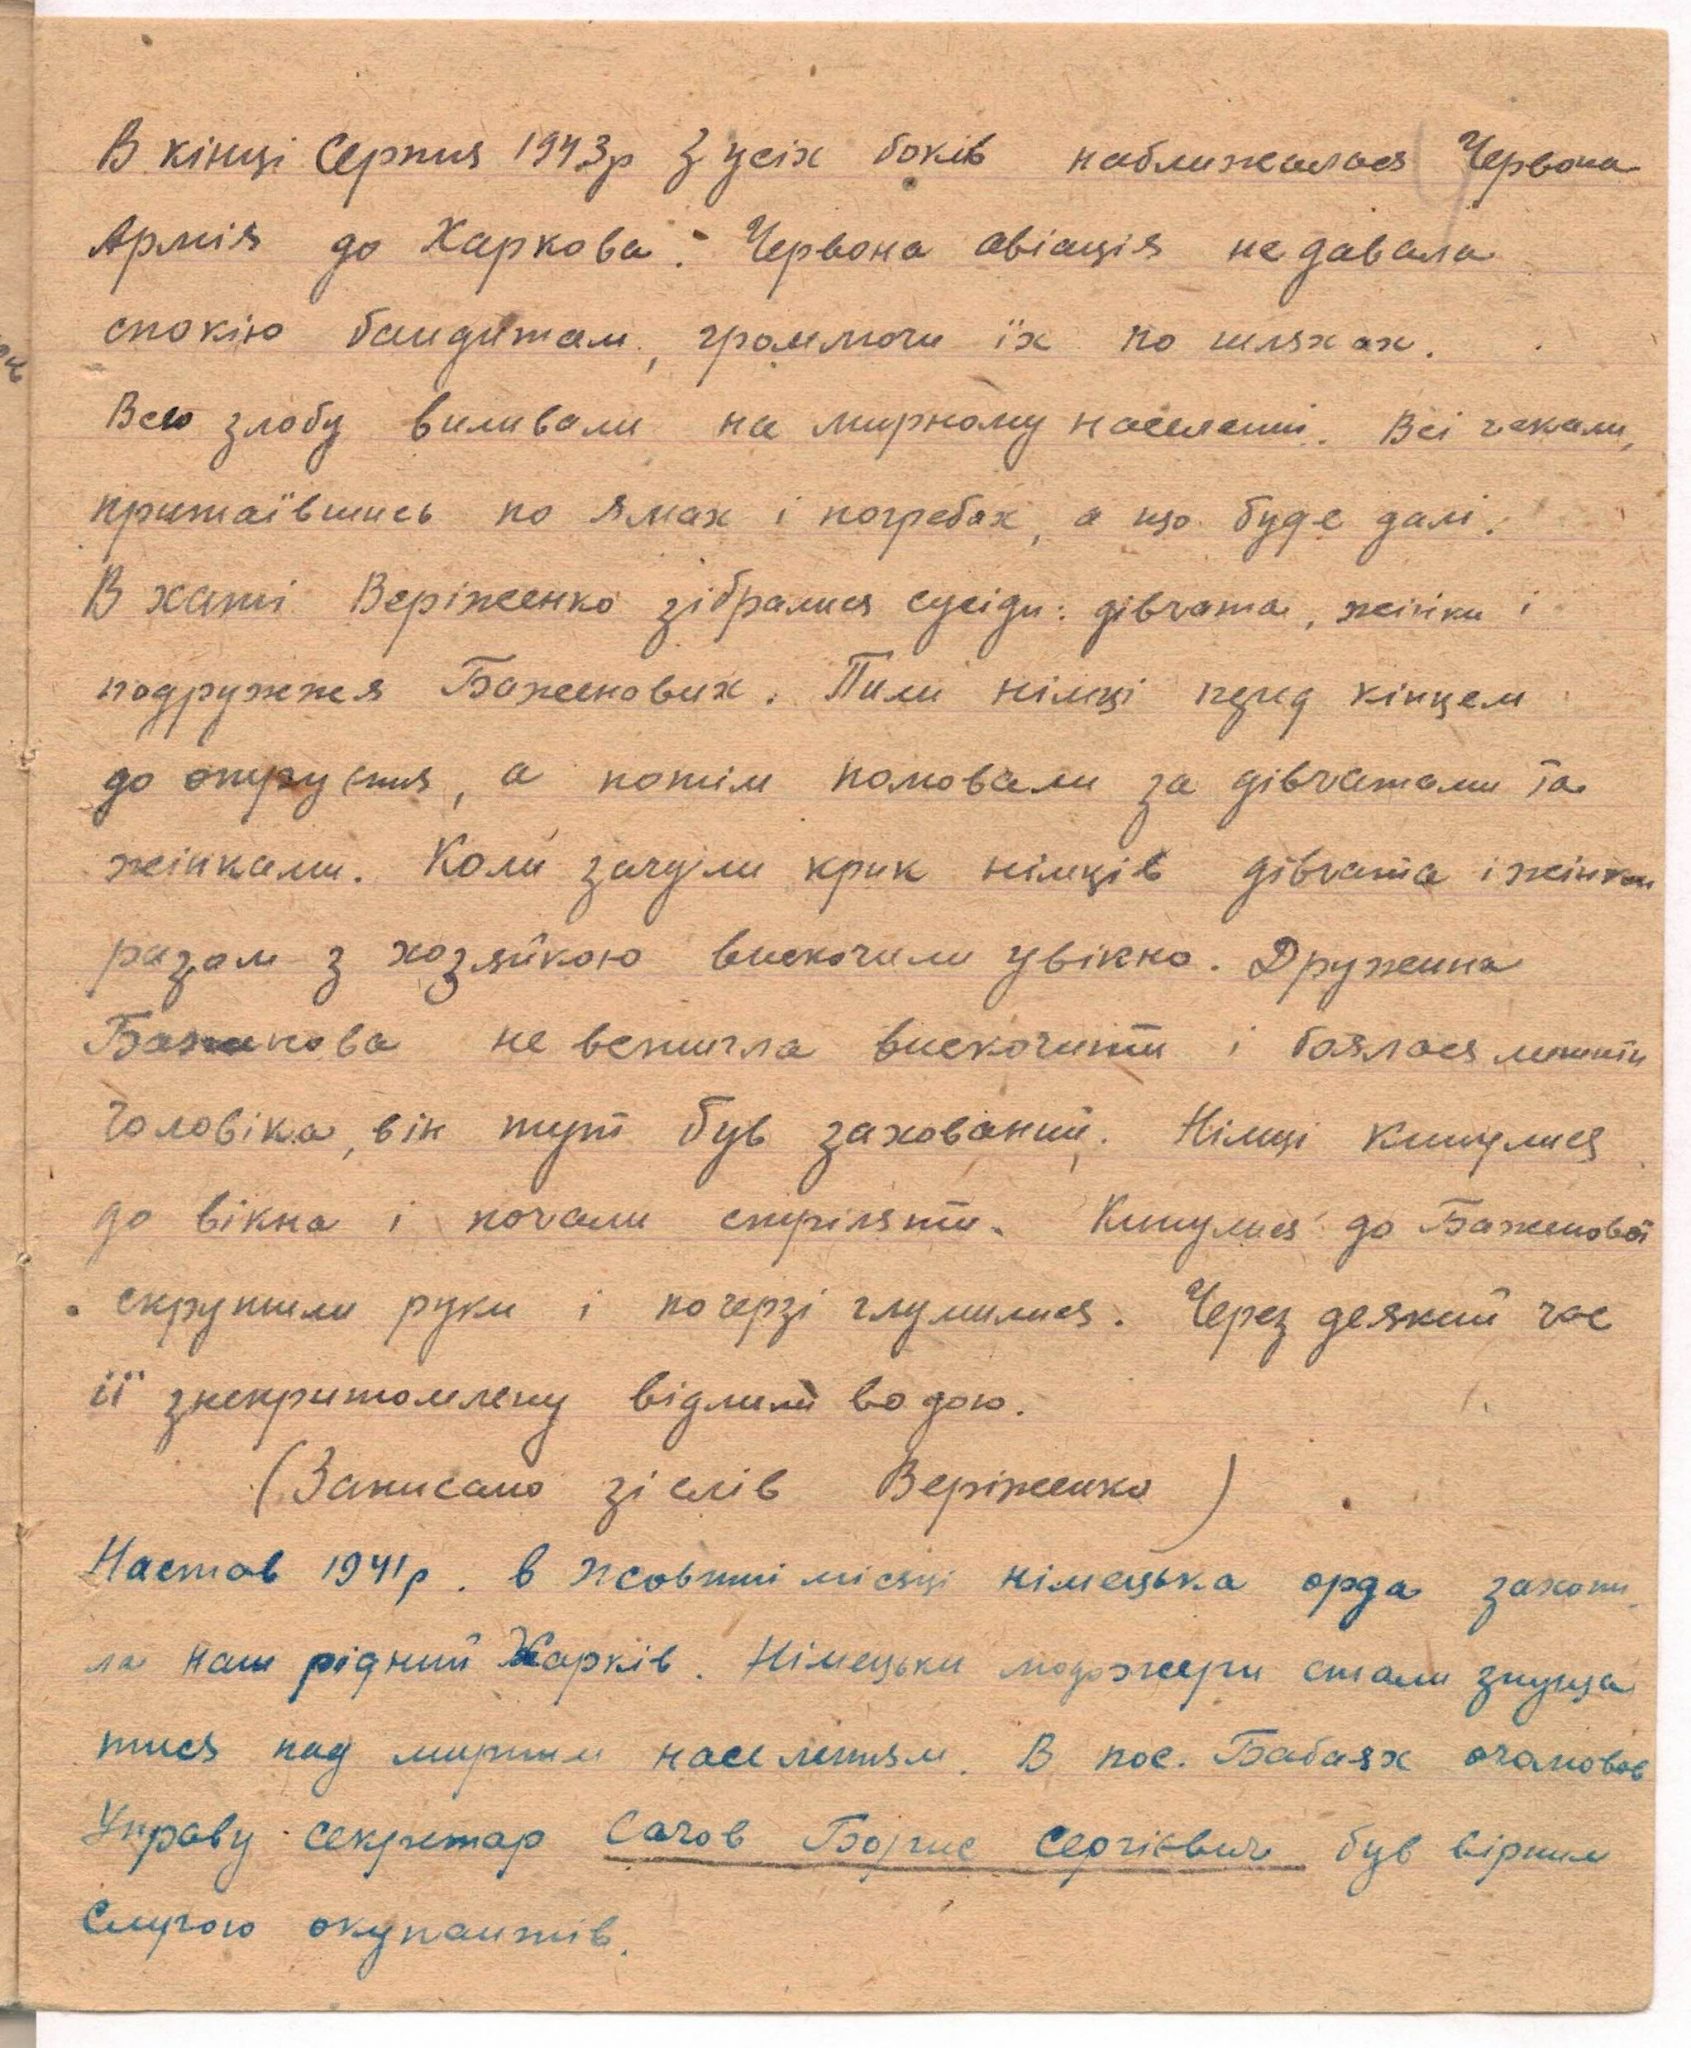 В кінці Серпня 1943р з усіх боків наближалася Червона
Армія до Харкова. Червона авіація не давала
спокію бандитам, громлючи їх по шляхах.
Всю злобу виливали на мирному населенні. Всі чекали,
притаївшись по ямах і погребах, а що буде далі.
В хаті Веріженко зібралися сусіди: дівчата, жінки і
подружжя Баженових. Пили німці перед кінцем
до опуху, а потім полювали за дівчатами та
жінками. Коли зачули крик німців дівчата і жінки
разом з хозяйкою вискочили у вікно. Дружина
Баженова не встигла вискочити і боялася лишити
чоловіка, він тут був захований. Німці кинулися
до вікна і почали стріляти. Кинулися до Баженової
скрутили руки і по черзі глумилися. Через деякий час
її знепритомлену відлили водою.
(Записано зі слів Веріженко)
Настав 1941р. в жовтні місяці німецька орда захопи
ла наш рідний Харків. Німецьки людожери стали знуща
тися над мирним населенням. В пос. Бабаях очолював
Управу секретар Сачов Борис Сергієвич був вірним
Слугою окупантів.